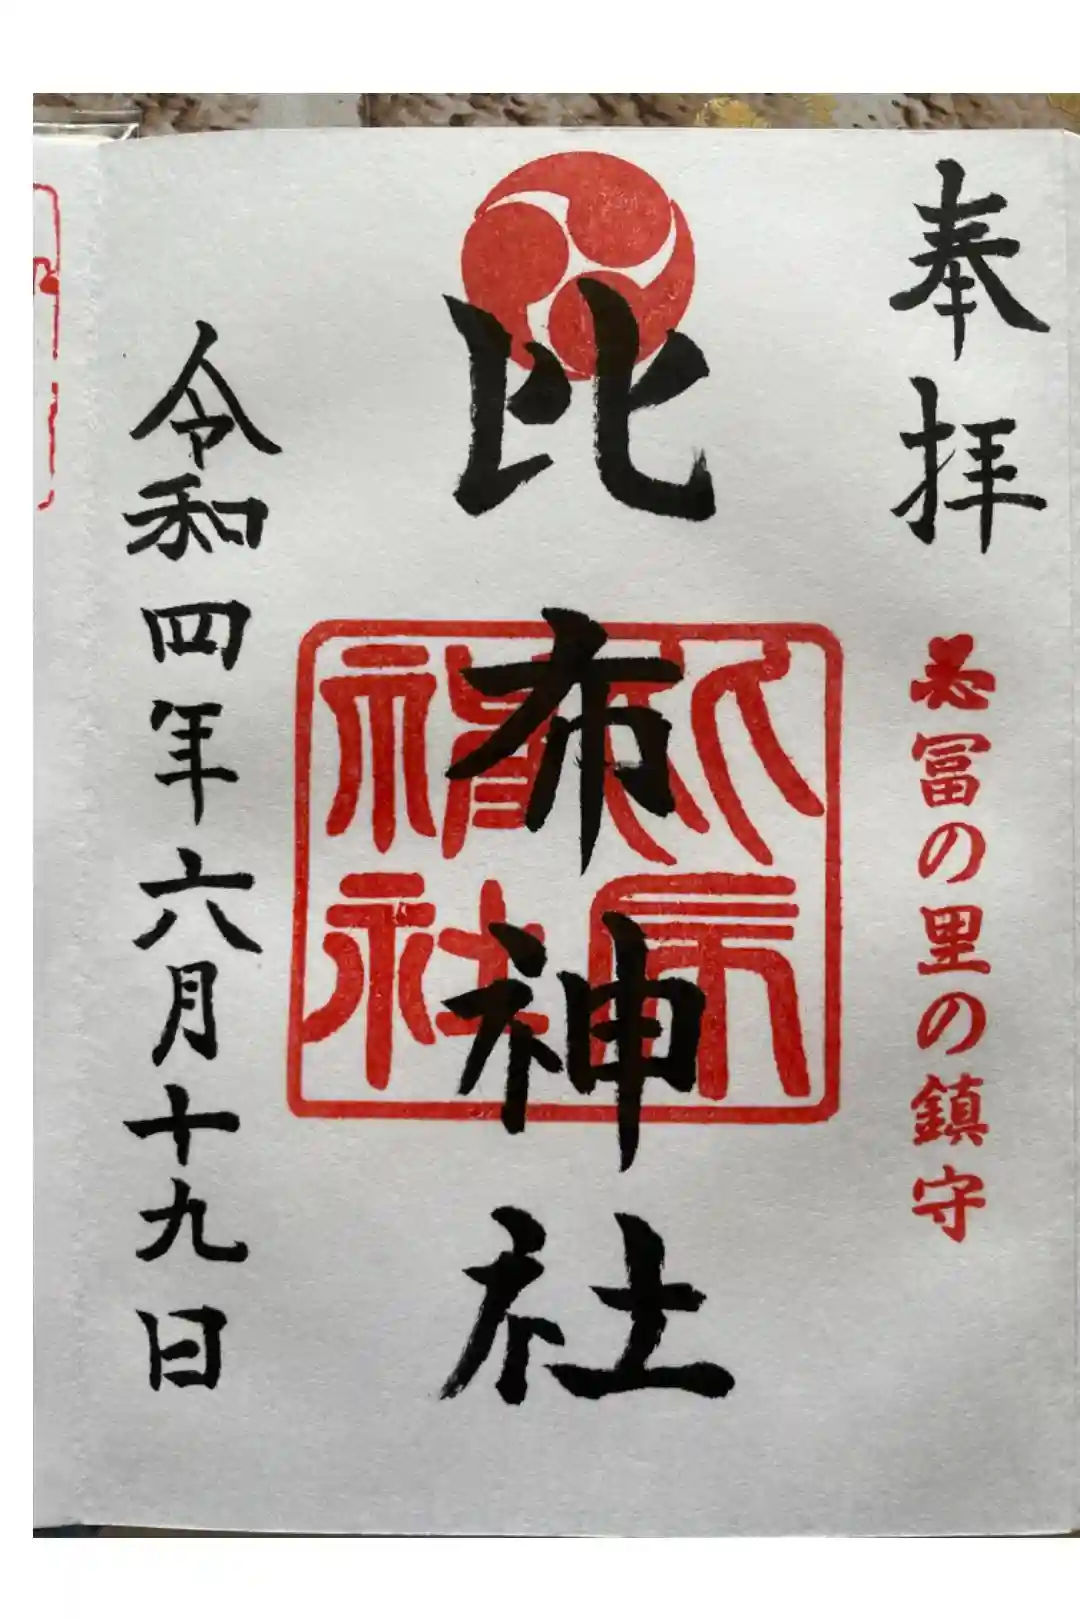 奉拝
冨の里の鎮守
比布神社
比布神社
令和四年六月十九日